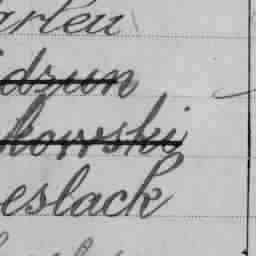 arleu
dzun
kowski
eslack